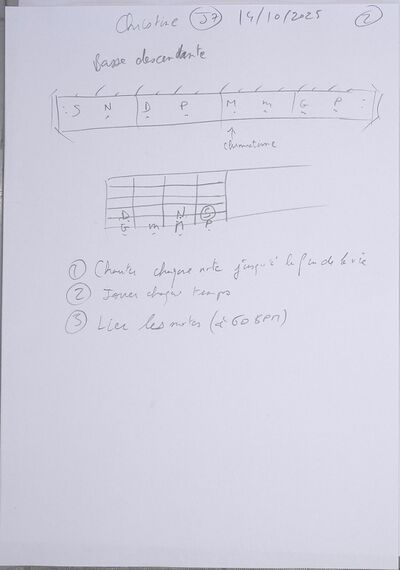 Christine J7 14/10/2025 2
Basse descendante
: S N D P M m G P :
↑
Chromatisme
D N S
G m M P
① Chanter chaque note jusqu'à la fin de la vie
② Jouer chaque temps
③ Lier les notes (à 60 BPM)